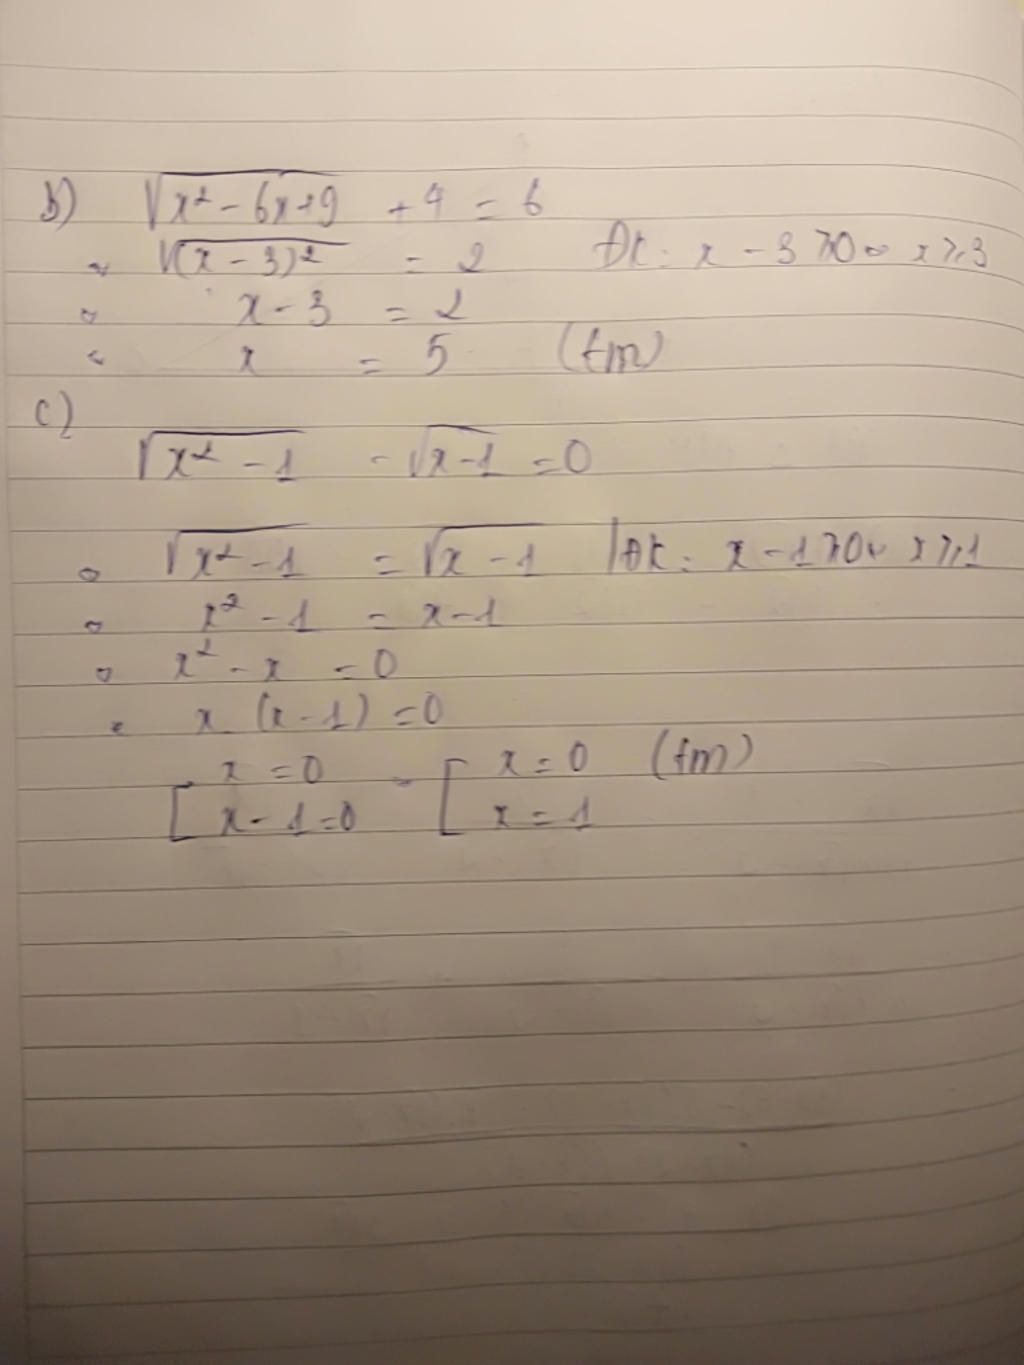 b) √(x² - 6x+9) + 4 = 6
⇔ √((x - 3)²) = 2 ĐK: x - 3 ≥ 0 ⇔ x ≥ 3
⇔ x - 3 = 2
⇔ x = 5 (tm)
c)
√(x² - 1) - √(x-1) = 0
⇔ √(x² - 1) = √(x - 1) | ĐK: x - 1 ≥ 0 ⇔ x ≥ 1
⇔ x² - 1 = x - 1
⇔ x² - x = 0
⇔ x (x - 1) = 0
[ x = 0 ⇔ [ x = 0 (tm)
x - 1 = 0 x = 1